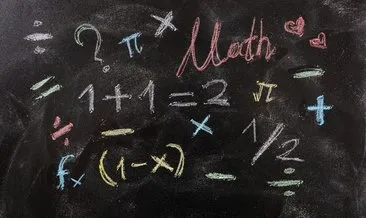 ÷ ? π × Math
= 1+1=2 = π +
÷ − × 1/2
fx (1-x) − ÷